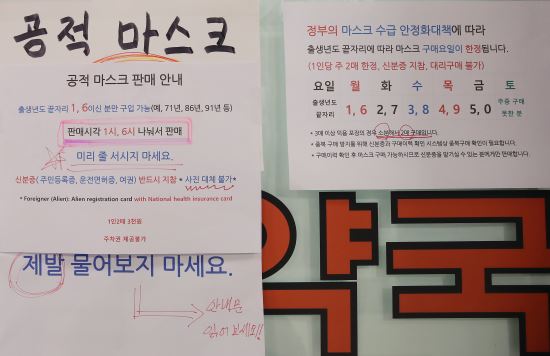 공적 마스크
공적 마스크 판매 안내
출생년도 끝자리 1, 6이신 분만 구입 가능(예, 71년, 86년, 91년 등)
판매시각 1시, 6시 나눠서 판매
미리 줄 서시지 마세요.
신분증( 주민등록증, 운전면허증, 여권) 반드시 지참 * 사진 대체 불가*
* Foreigner (Alien): Alien registration card with National health insurance card
1인2매 3천원
주차권 제공불가
제발 물어보지 마세요.
안내문
읽어보세요!!
정부의 마스크 수급 안정화대책에 따라
출생년도 끝자리에 따라 마스크 구매요일이 한정됩니다.
(1인당 주 2매 한정, 신분증 지참, 대리구매 불가)
요일 월 화 수 목 금 토
출생년도 끝자리 1, 6 2, 7 3, 8 4, 9 5, 0 주중 구매 못한 분
* 3매 이상 덕용 포장의 경우 소분해서 2매 구매입니다.
* 중복 구매 방지를 위해 신분증과 구매이력 확인 시스템상 중복구매 확인이 필요합니다.
* 구매이력 확인 후 마스크 구매 가능하시므로 신분증을 맡기실 수 있는 분에게만 판매합니다.
약국